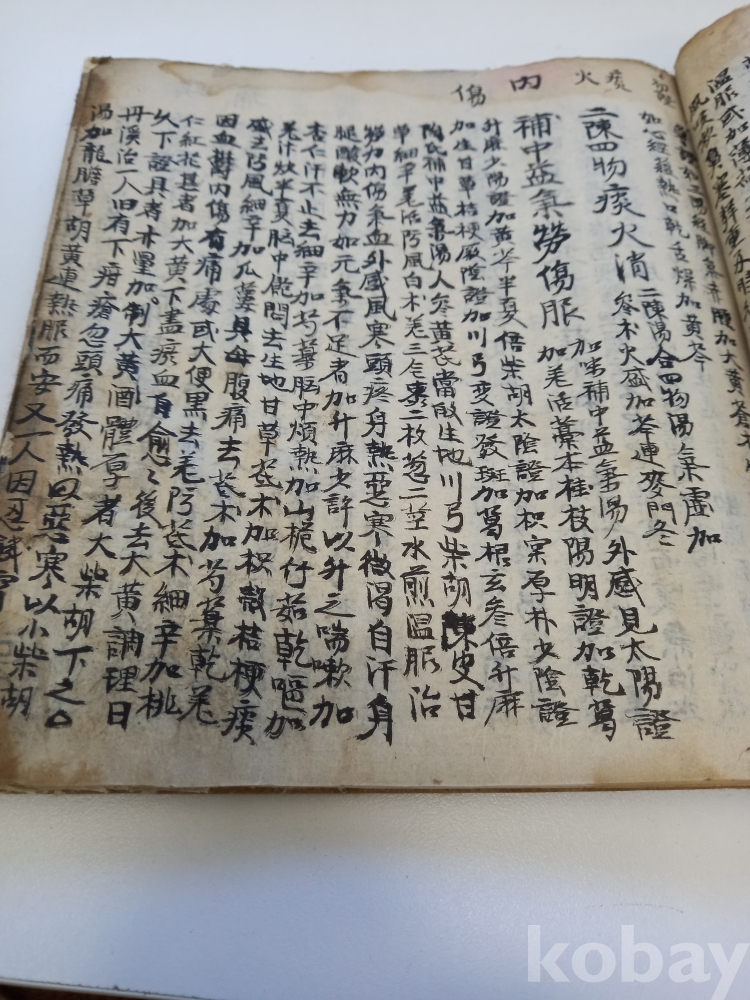 痰火
內
傷
如心經 熱口乾舌燥加黃芩
二陳四物痰火消 二陳湯合四物湯 氣虛加參朮火盛加芩連麥門冬
補中益氣勞傷服 加味補中益氣湯 外感見太陽證加羌活藁本桂枝陽明證加乾葛
升麻少陽證加黃芩半夏倍柴胡太陰證加枳實厚朴少陰證
加生甘草桔梗厥陰證加川芎變證發斑加葛根玄參倍升麻
陶氏補中益氣湯人參黃芪當歸生地川芎柴胡陳皮甘
草細辛羌活防風白朮羌三仝棗二枚葱二莖水煎溫服治
勞力內傷氣血外感風寒頭疼身熱惡寒微渴自汗身
腿酸軟無力如元氣不足者加升麻少許以升之喘嗽加
杏仁汗不止去細辛加芍藥胸中煩熱加山梔仔茹乾嘔加
羌汁炒半夏胸中飽悶去生地甘草芪朮加枳殼桔梗痰
盛去防風細辛加瓜蔞貝母腹痛去芪朮加芍藥乾羌
因血鬱內傷有痛處或大便黑去羌防芪朮細辛加桃
仁紅花甚者加大黃下盡瘀血自愈愈後去大黃調理日
久下證具者亦量加制大黃酒體厚者大柴胡下之
丹溪治一人旧有下疳瘡忽頭痛發熱曰惡寒以小柴胡
湯加龍膽草胡黃連熱服而安又一人因
kobay